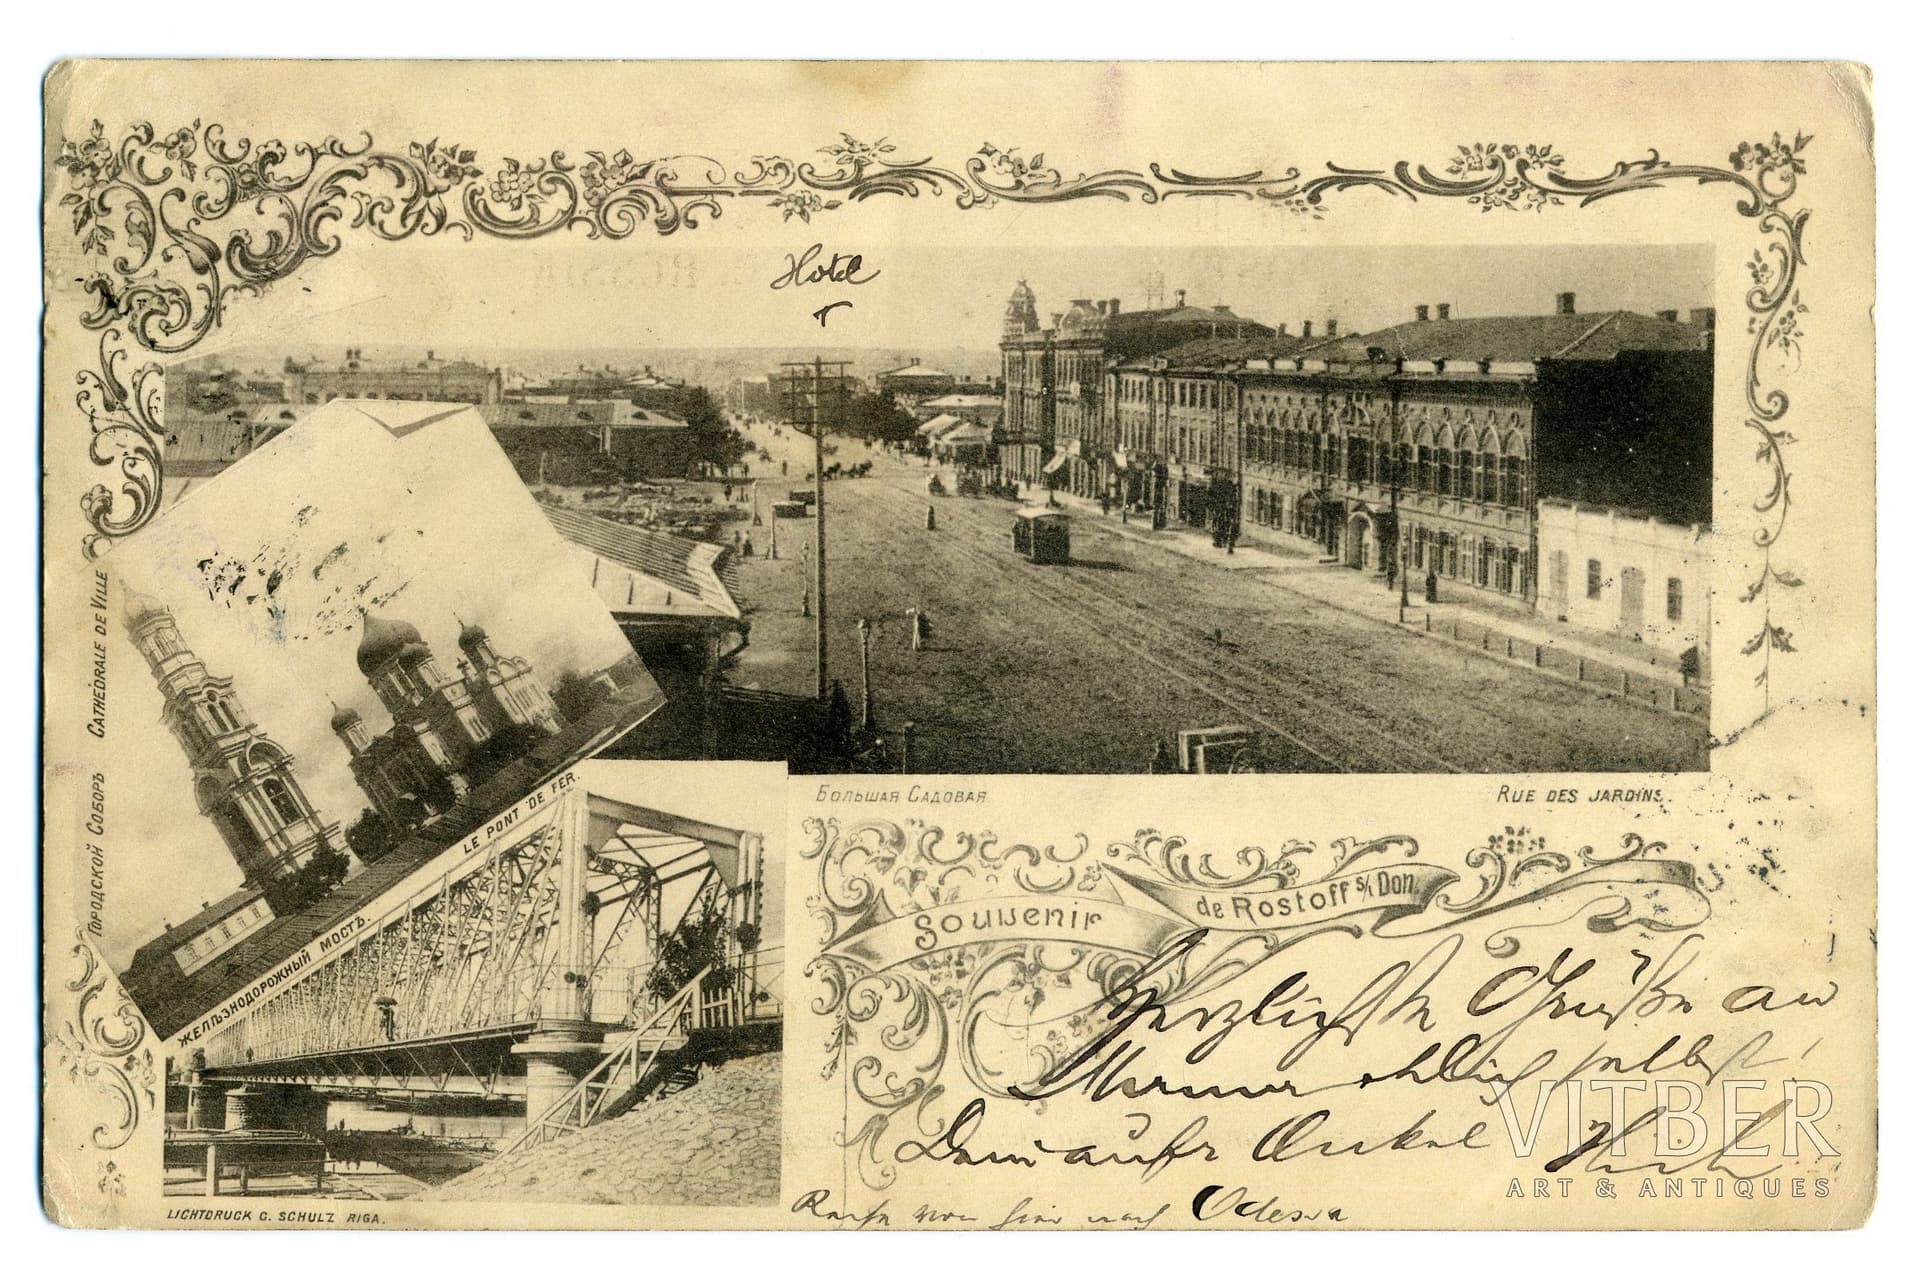 Hotel
Городской Соборъ Cathédrale de Ville
Желѣзнодорожный мостъ. Le pont de fer.
Большая Садовая
Rue des Jardins.
Souvenir
de Rostoff s/Don.
Herzlichste Grüße an
selbst!
Onkel
Reise von hier nach Odessa
Lichtdruck C. Schulz Riga.
VITBER
ART & ANTIQUES